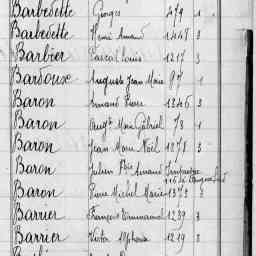 Barbedette Georges 479 1
Barbedette Henri Armand 1448 3
Barbier Pascal Louis 1217 3
Bardoux Auguste Jean Marie 87 1
Baron Armand Pierre 1346 3
Baron Aug.te Marie Gabriel 73 1
Baron Jean Marie Noël 1278 3
Baron Julien Armand
Baron Pierre Michel Marie 1373 3
Barrier François Emmanuel 1239 3
Barrier Victor Alphonse 1219 3